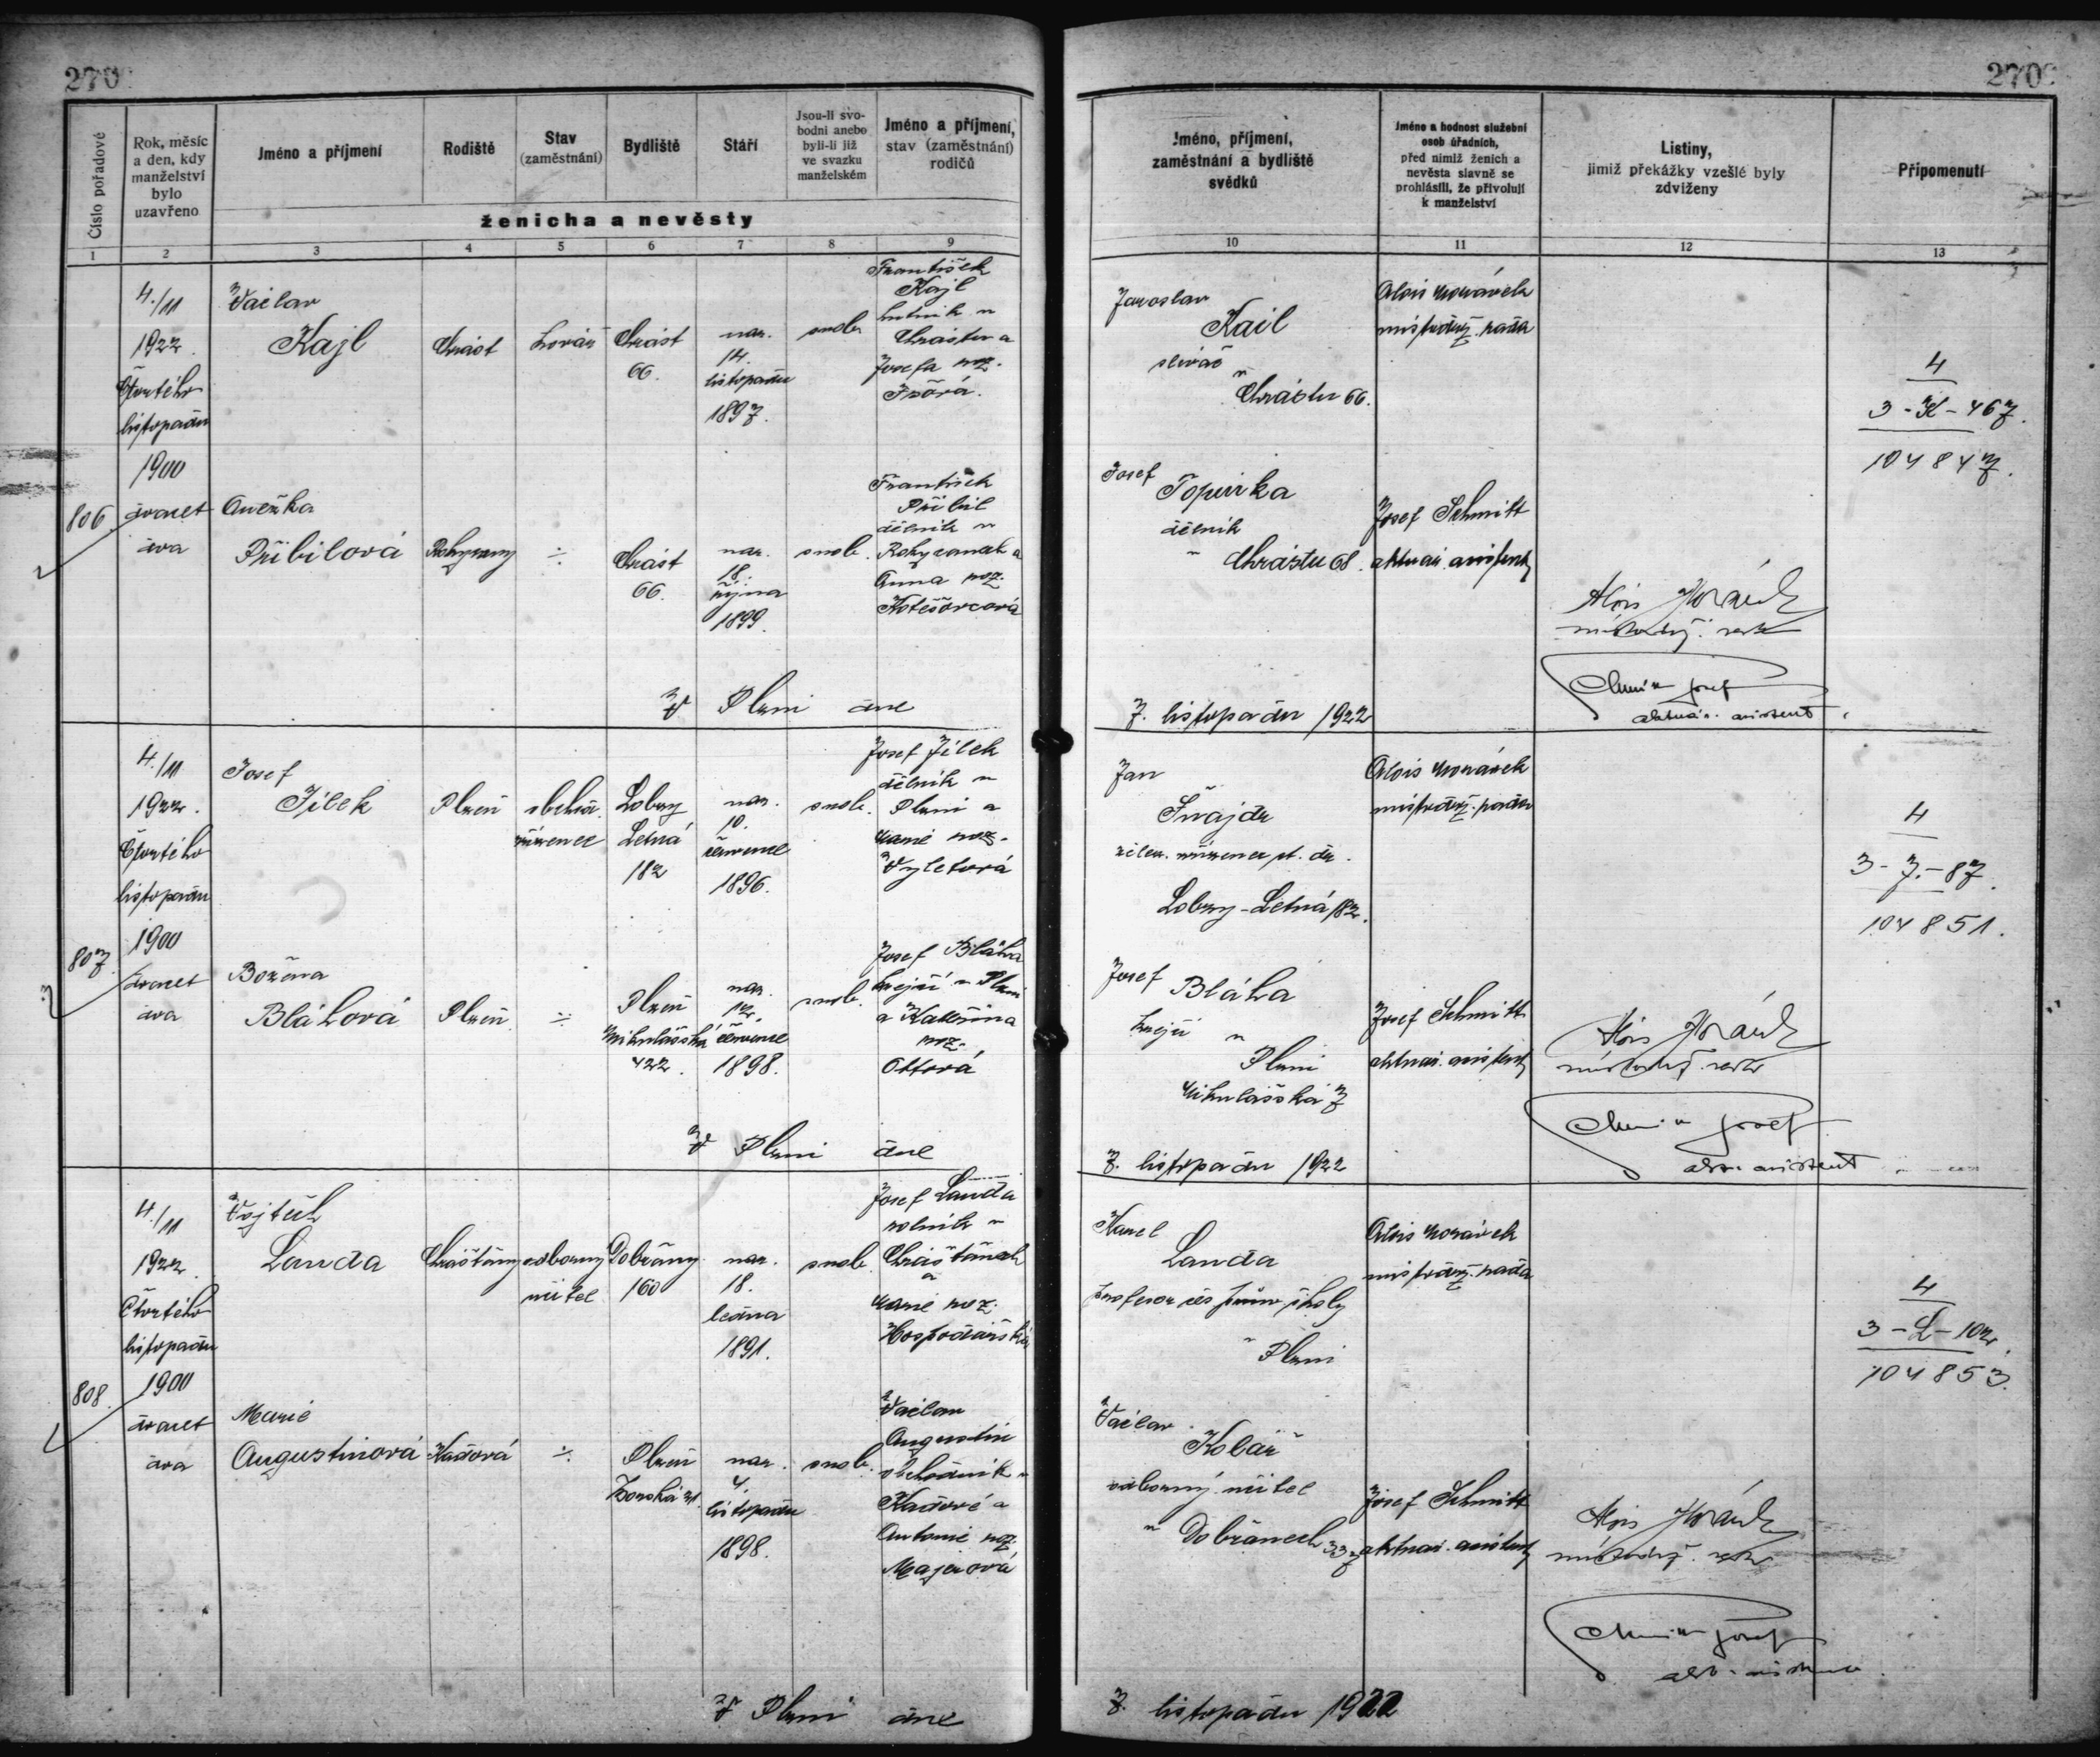 270
270
Číslo pořadové
Rok, měsíc
a den, kdy
manželství
bylo
uzavřeno
Jméno a příjmení
Rodiště
Stav
(zaměstnání)
Bydliště
Stáří
Jsou-li svo-
bodni anebo
byli-li již
ve svazku
manželském
Jméno a příjmení,
stav (zaměstnání)
rodičů
ženicha a nevěsty
Jméno, příjmení,
zaměstnání a bydliště
svědků
Jméno a hodnost služební
osob úřadních,
před nimiž ženich a
nevěsta slavně se
prohlásili, že přivolují
k manželství
Listiny,
jimiž překážky vzešlé byly
zdviženy
Připomenutí
1 2 3 4 5 6 7 8 9 10 11 12 13
806
4./11
1922
Čtvrtého
listopadu
1900
dvacet
dva
Václav
Kajl
Chrást
kovář
Chrást
66.
nar.
14.
listopadu
1897.
svob.
František
Kajl
v
Chrástu a
Josefa roz.
Jaroslav
Kail
slévač
v
Chrástu 66.
Alois Morávek
místodrž. rada
4
3-K-467.
104847.
Anežka
Přibilová
Rokycany
÷
Chrást
66.
nar.
18.
října
1899.
svob.
František
Přibil
dělník v
Rokycanech a
Anna roz.
Josef
Topinka
dělník
v Chrástu 68.
Josef Schmitt
aktuár. asistent
Alois Morávek
místodrž. rada
Schmitt Josef
aktuár. asistent
V Plzni dne
7. listopadu 1922
807
4./11
1922.
Čtvrtého
listopadu
1900
dvacet
dva
Josef
Jílek
Plzeň
zřízenec
Lobzy
Letná
182
nar.
10.
července
1896.
svob.
Josef Jílek
dělník v
Plzni a
Marie roz.
Vyletová
Jan
Šnajdr
zřízenec st. dr.
Lobzy-Letná 182.
Alois Morávek
místodrž. rada
4
3-J.-87.
104851.
Božena
Bláhová
Plzeň
÷
Plzeň
Mikulášská
422.
nar.
12.
července
1898.
svob.
Josef Bláha
krejčí v Plzni
a Kateřina
roz.
Ottová
Josef
Bláha
krejčí v
Plzni
Mikulášská 7
Josef Schmitt
aktuár. asistent
Alois Morávek
místodrž. rada
Schmitt Josef
akt. asistent
V Plzni dne
7. listopadu 1922
808.
4./11
1922.
Čtvrtého
listopadu
1900
dvacet
dva
Vojtěch
Landa
Chrášťany
odborný
učitel
Dobřany
160
nar.
18.
ledna
1891.
svob.
Josef Landa
rolník v
Chrášťanech
a
Marie roz.
Hospodářská
Karel
Landa
profesor školy
v Plzni
Alois Morávek
místodrž. rada
4
3-L-102.
104853.
Marie
Augustinová
Kadová
÷
Plzeň
Borská 31.
nar.
4.
listopadu
1898.
svob.
Václav
Augustin
obchodník v
Kadově a
Antonie roz.
Majerová
Václav
Kolář
odborný učitel
v Dobřanech 337
Josef Schmitt
aktuár. asistent
Alois Morávek
místodrž. rada
Schmitt Josef
akt. asistent
V Plzni dne
7. listopadu 1922